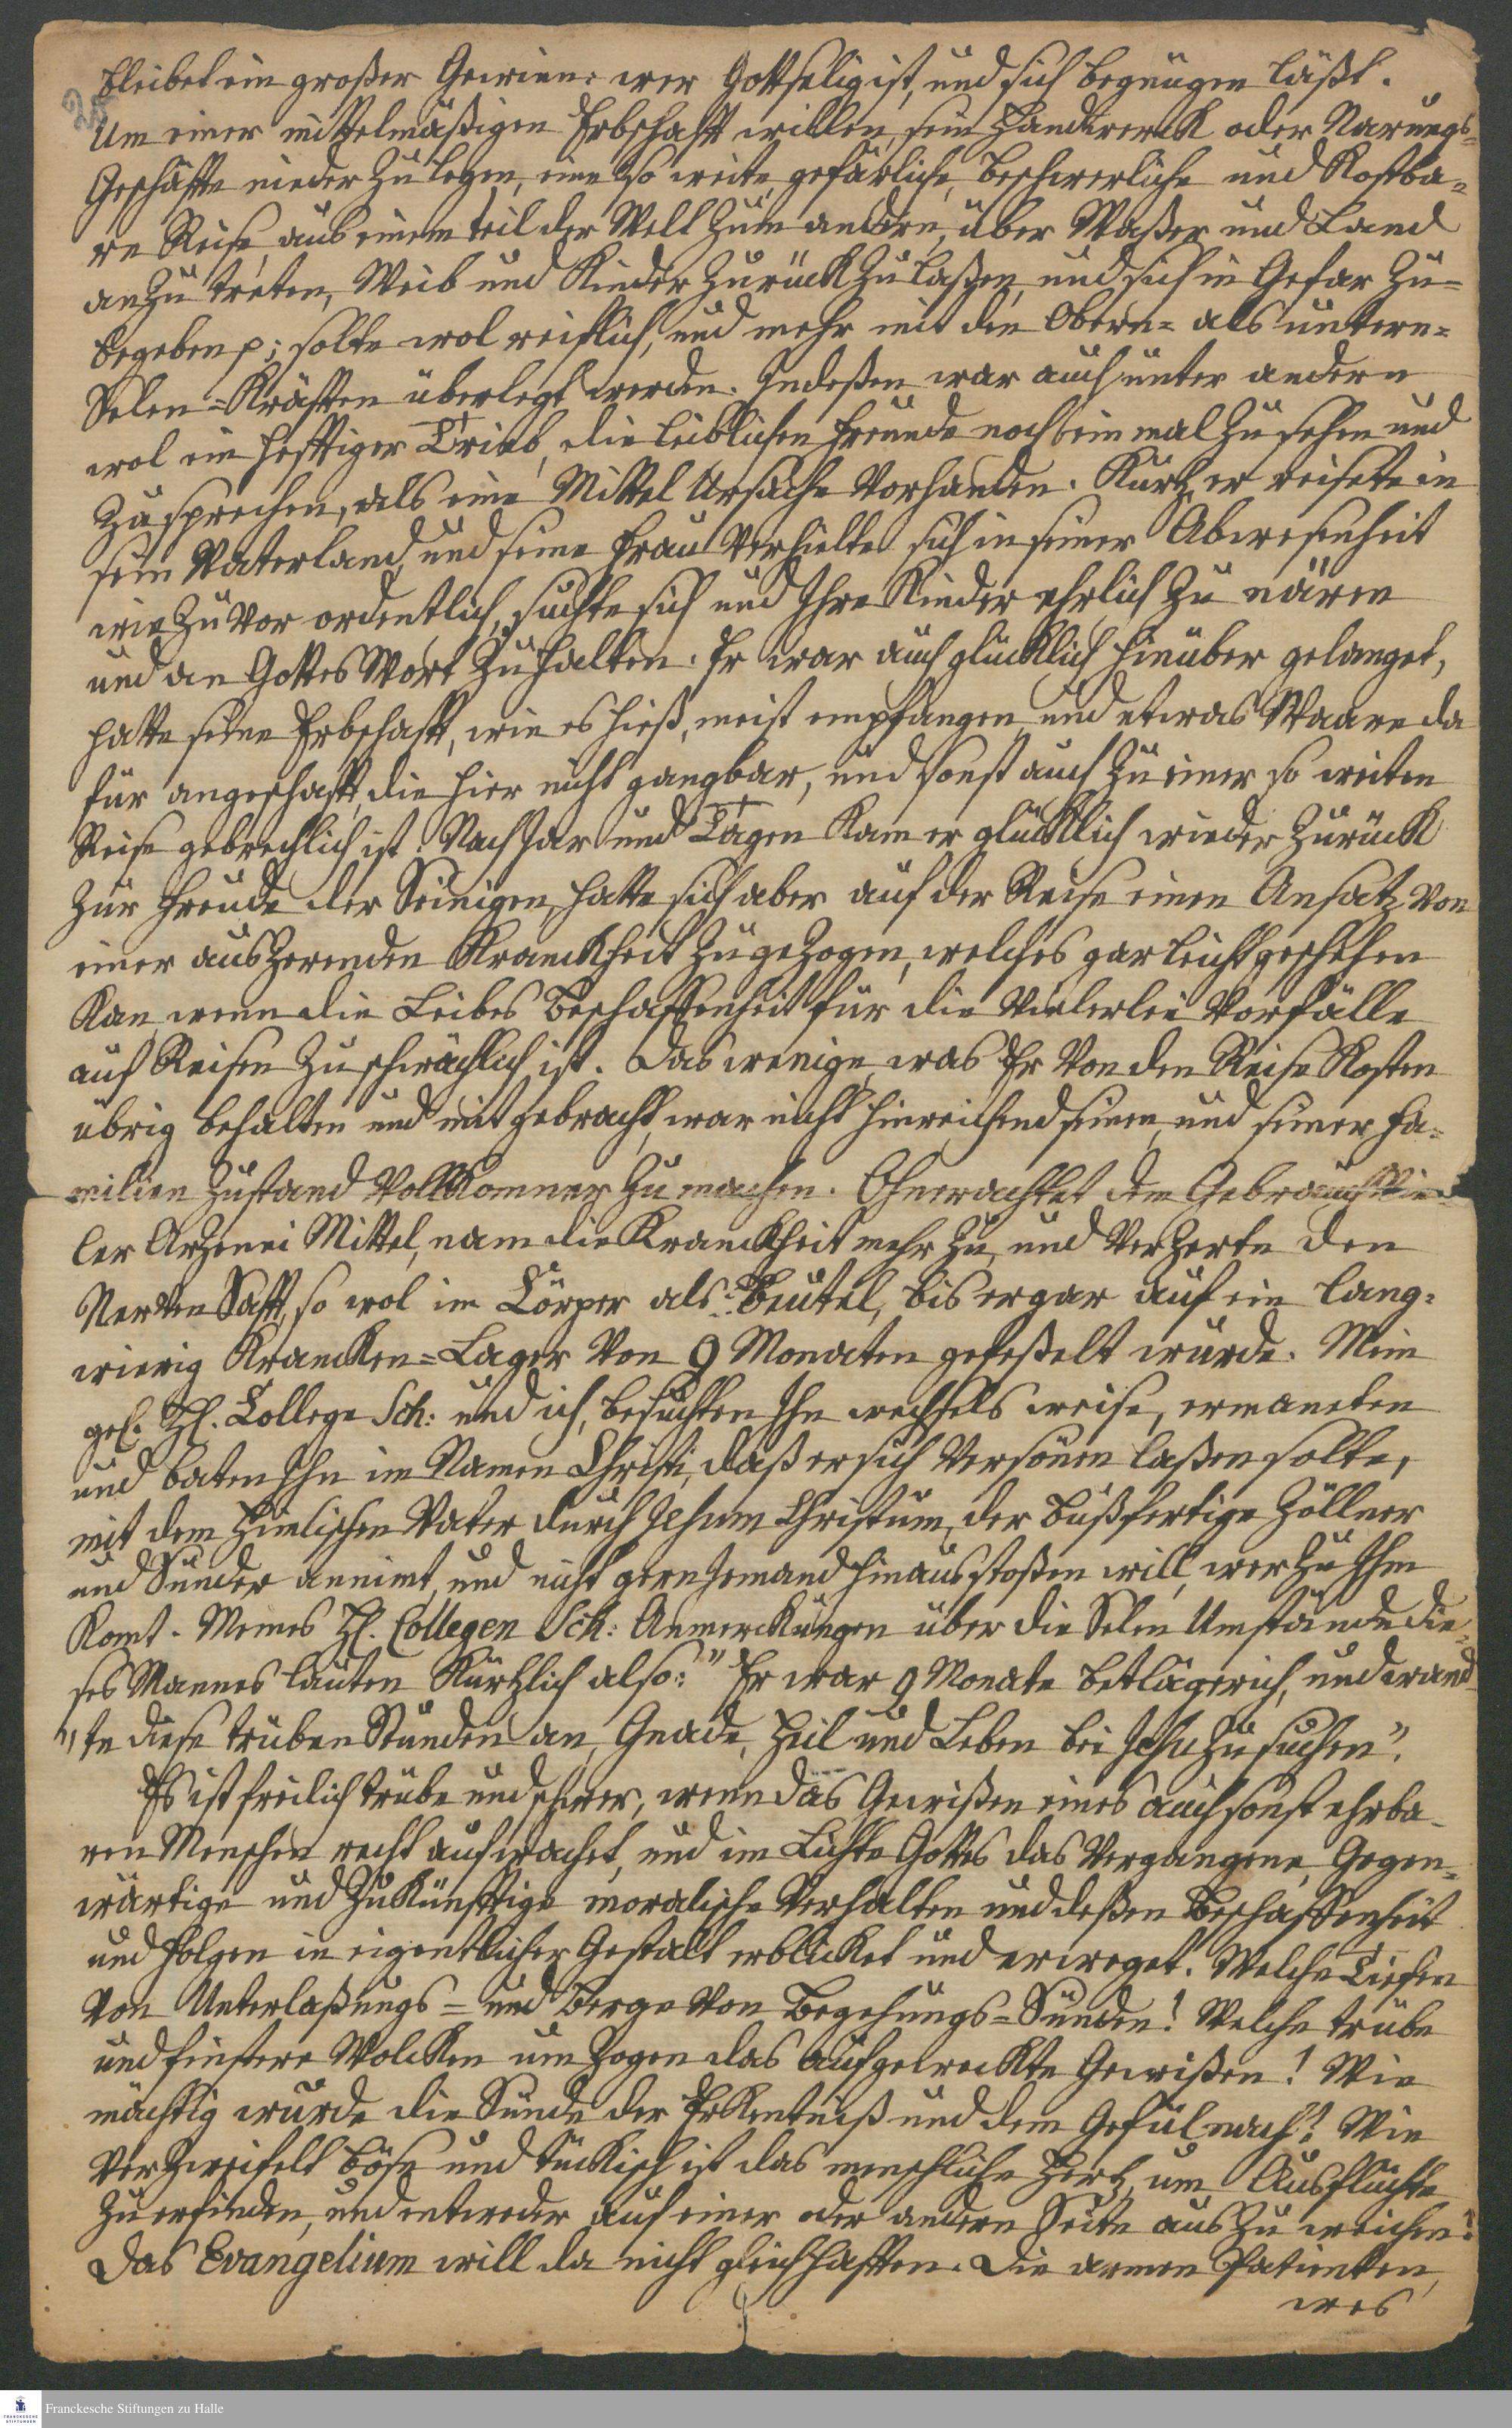 bleibet ein großer Gewinn: wer Gottselig ist, und sich begnügen läßt.
Um einer mittelmäßigen Erbschafft willen, sein Handwerck oder Narungs-
Geschäffte nieder zu legen, eine so weite, gefärliche, beschwerliche und Kostba-
re Reise, aus einem teil der Welt zum andern, über Waßer und Land
anzu treten, Weib und Kinder zurück zu laßen, und sich in Gefar zu-
begeben p; solte wol reiflich, und mehr mit den Obern- als untern-
Selen-Kräfften überlegt werden. Indeßen war auch unter andern
wol ein hefftiger Trieb, die leiblichen Freunde noch ein mal zu sehen und
zu sprechen, als eine Mittel Ursache vorhanden. Kurtz er reisete in
sein Vaterland, und seine Frau verhielte sich in seiner Abwesenheit
wie zuvor ordentlich, suchte sich und Ihre Kinder ehrlich zu nären
und an Gottes Wort zu halten. Er war auch glücklich hinüber gelanget,
hatte seine Erbschafft, wie es hieß, meist empfangen und etwas Waare da
für angeschafft, die hier nicht gangbar, und sonst auch zu einer so weiten
Reise gebrechlich ist. Nach Jar und Tagen kam er glücklich wieder zurück
zur Freude der Seinigen, hatte sich aber auf der Reise einen Ansatz von
einer auszerenden Kranckheit zugezogen, welches gar leicht geschehen
kan, wenn die Leibes Beschaffenheit für die vielerlei Vorfälle
auf Reisen zu schwächlich ist. Das wenige, was Er von den Reise Kosten
übrig behalten und mit gebracht, war nicht hinreichend seinen, und seiner Fa-
milien Zustand Vollkomner zu machen. Ohnerachtet dem Gebrauch vie-
ler Arzenei Mittel, nam die Kranckheit mehr zu, und verzerte den
Nerven Safft, so wol im Cörper als Beutel, bis er gar auf ein lang-
wierig Krancken-Lager von 9 Monaten gefeßelt wurde. Mein
gel. H. College Sch: und ich, besuchten Ihn wechsels weise, ermaneten
und baten Ihn im Namen Christi, daß er sich versönen laßen solte,
mit dem Himlischen Vater durch Jesum Christum, der bußfertige Zöllner
und Sünder annimt, und nicht gern Jemand hinaus stoßen will, wer zu Ihm
komt. Meines H. Collegen Sch: Anmerckungen über die Selen Umstände die-
ses Mannes lauten kürtzlich also: "Er war 9 Monate betlägerich, und wand-
"te diese trüben Stunden an, Gnade, Heil und Leben bei Jesu zu suchen".
Es ist freilich trübe und schwer, wenn das Gewißen eines auch sonst ehrba-
ren Menschen recht aufwachet, und im Lichte Gottes das Vergangene, Gegen-
wärtige und Zukünfftige moralische Verhalten und deßen Beschaffenheit
und Folgen in eigentlicher Gestalt erblicket und erweget. Welche Tiefen
von Unterlaßungs- und Berge von Begehungs-Sünden! Welche trübe
und finstere Wolcken um zogen das aufgeweckte Gewißen! Wie
mächtig wurde die Sünde der Erkentniß und dem Gefül nach! Wie
verzweifelt böse und tückisch ist das menschliche Hertz, um Ausflüchte
zu erfinden, und entweder auf einer oder andern Seite aus zu weichen!
Das Evangelium will da nicht gleich hafften. Die armen Patienten,
wes
Franckesche Stiftungen zu Halle